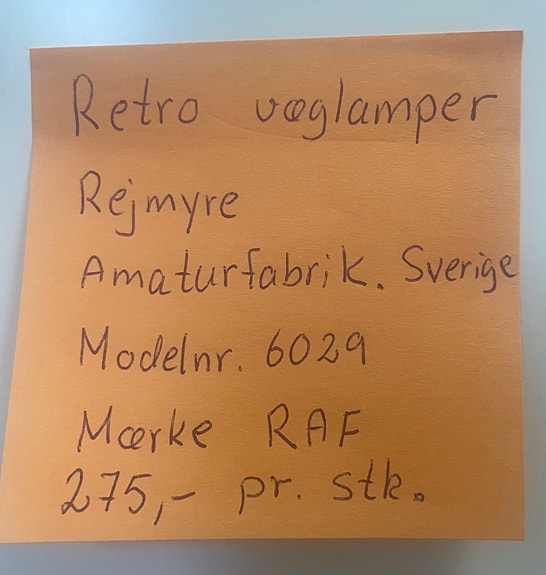 Retro væglamper
Rejmyre
Amaturfabrik. Sverige
Modelnr. 6029
Mærke RAF
275,- pr. stk.